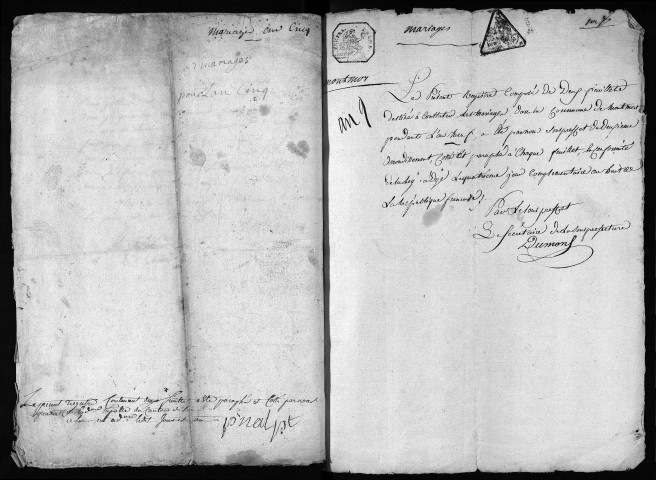 Mariages an Cinq
mariages
pour l'an Cinq
Le présent Registre Contenant deux feuillets a été paraphé et Coté par nous
président
pinal pt
mariages
an 9
montmor
an 9
Le Présent Registre Composé de Deux feuillets
destiné à Constater des mariages dans la Commune de Montmort
pendant L'an Neuf, a été par nous Souspréfet du Deuxième
arrondissement Coté et paraphé à Chaque feuillet, le Conformité
de la Loy. a le quatrième jour Complémentaire an huit de
La République française.
Par Le Souspréfet
Le Secrétaire de la Souspréfecture
Dumont